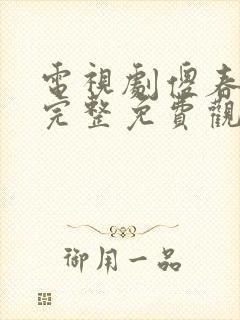 電視劇傻春
完整免費觀
御用一品